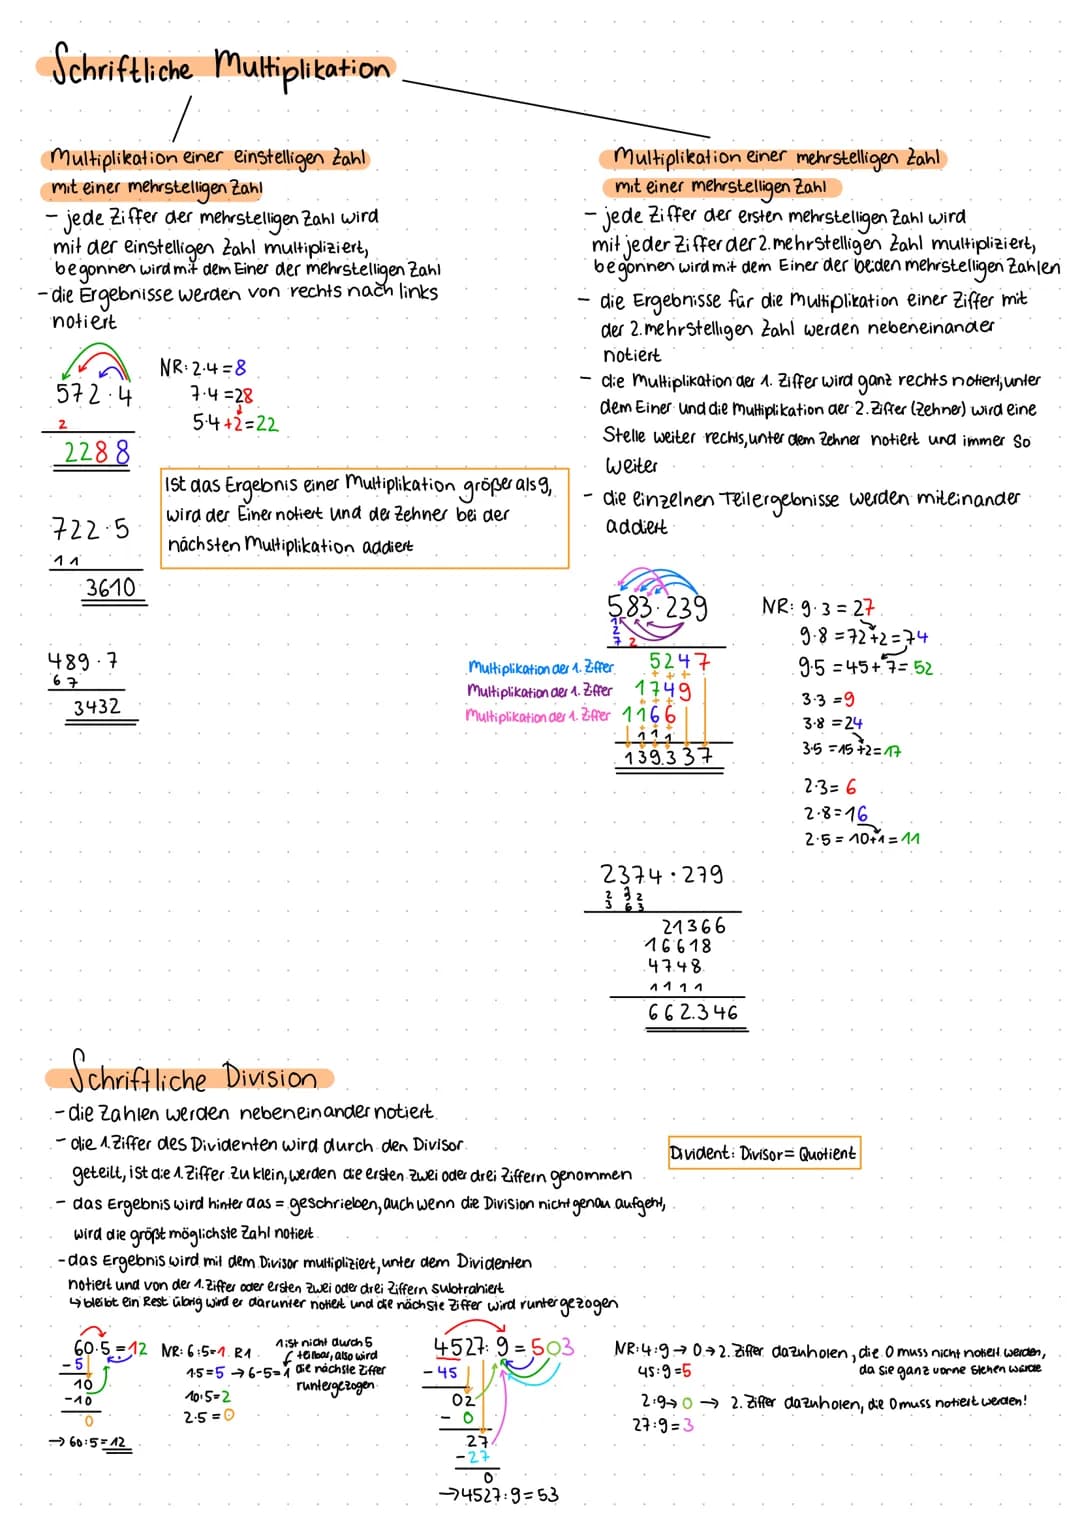 Schriftliche Multiplikation
Multiplikation einer einstelligen Zahl
mit einer mehrstelligen Zahl
- jede Ziffer der mehrstelligen Zahl wird
mit der einstelligen Zahl multipliziert,
begonnen wird mit dem Einer der mehrstelligen Zahl
- die Ergebnisse werden von rechts nach links
notiert
572·4
2
2288
NR: 2·4=8
7·4=28
5·4+2=22
Ist das Ergebnis einer Multiplikation größer als 9,
wird der Einer notiert und der Zehner bei der
nächsten Multiplikation addiert
722·5
11
3610
489·7
67
3432
Multiplikation einer mehrstelligen Zahl
mit einer mehrstelligen Zahl
- jede Ziffer der ersten mehrstelligen Zahl wird
mit jeder Ziffer der 2. mehrstelligen Zahl multipliziert,
begonnen wird mit dem Einer der beiden mehrstelligen Zahlen
- die Ergebnisse für die Multiplikation einer Ziffer mit
der 2. mehrstelligen Zahl werden nebeneinander
notiert
- die Multiplikation der 1. Ziffer wird ganz rechts notiert, unter
dem Einer und die Multiplikation der 2. Ziffer (Zehner) wird eine
Stelle weiter rechts, unter dem Zehner notiert und immer so
weiter
- die einzelnen Teilergebnisse werden miteinander
addiert
583·239
1
2
7 2
Multiplikation der 1. Ziffer 5247
+ + +
Multiplikation der 1. Ziffer 1749
+ + +
Multiplikation der 1. Ziffer 1166
111
139.337
NR: 9·3=27
9·8=72+2=74
9·5=45+7=52
3·3=9
3·8=24
3·5=15+2=17
2·3=6
2·8=16
2·5=10+1=11
2374·279
2 3 2
3 6 3
21366
16618
4748
1111
662.346
Schriftliche Division
- die Zahlen werden nebeneinander notiert
- die 1. Ziffer des Dividenten wird durch den Divisor
geteilt, ist die 1. Ziffer zu klein, werden die ersten zwei oder drei Ziffern genommen
Divident: Divisor= Quotient
- das Ergebnis wird hinter das = geschrieben, auch wenn die Division nicht genau aufgeht,
wird die größt möglichste Zahl notiert
- das Ergebnis wird mit dem Divisor multipliziert, unter dem Dividenten
notiert und von der 1. Ziffer oder ersten zwei oder drei Ziffern subtrahiert
↳ bleibt ein Rest übrig wird er darunter notiert und die nächste Ziffer wird runtergezogen
60:5=12
-5
10
-10
0
→ 60:5=12
NR: 6:5=1 R1
1·5=5 → 6-5=1
10:5=2
2·5=0
1 ist nicht durch 5
teilbar, also wird
die nächste Ziffer
runtergezogen
4527:9=503
-45
02
- 0
27
-27
0
→4527:9=53
NR: 4:9 → 0 → 2. Ziffer dazuholen, die 0 muss nicht notiert werden,
da sie ganz vorne stehen würde
45:9=5
2:9 → 0 → 2. Ziffer dazuholen, die 0 muss notiert werden!
27:9=3